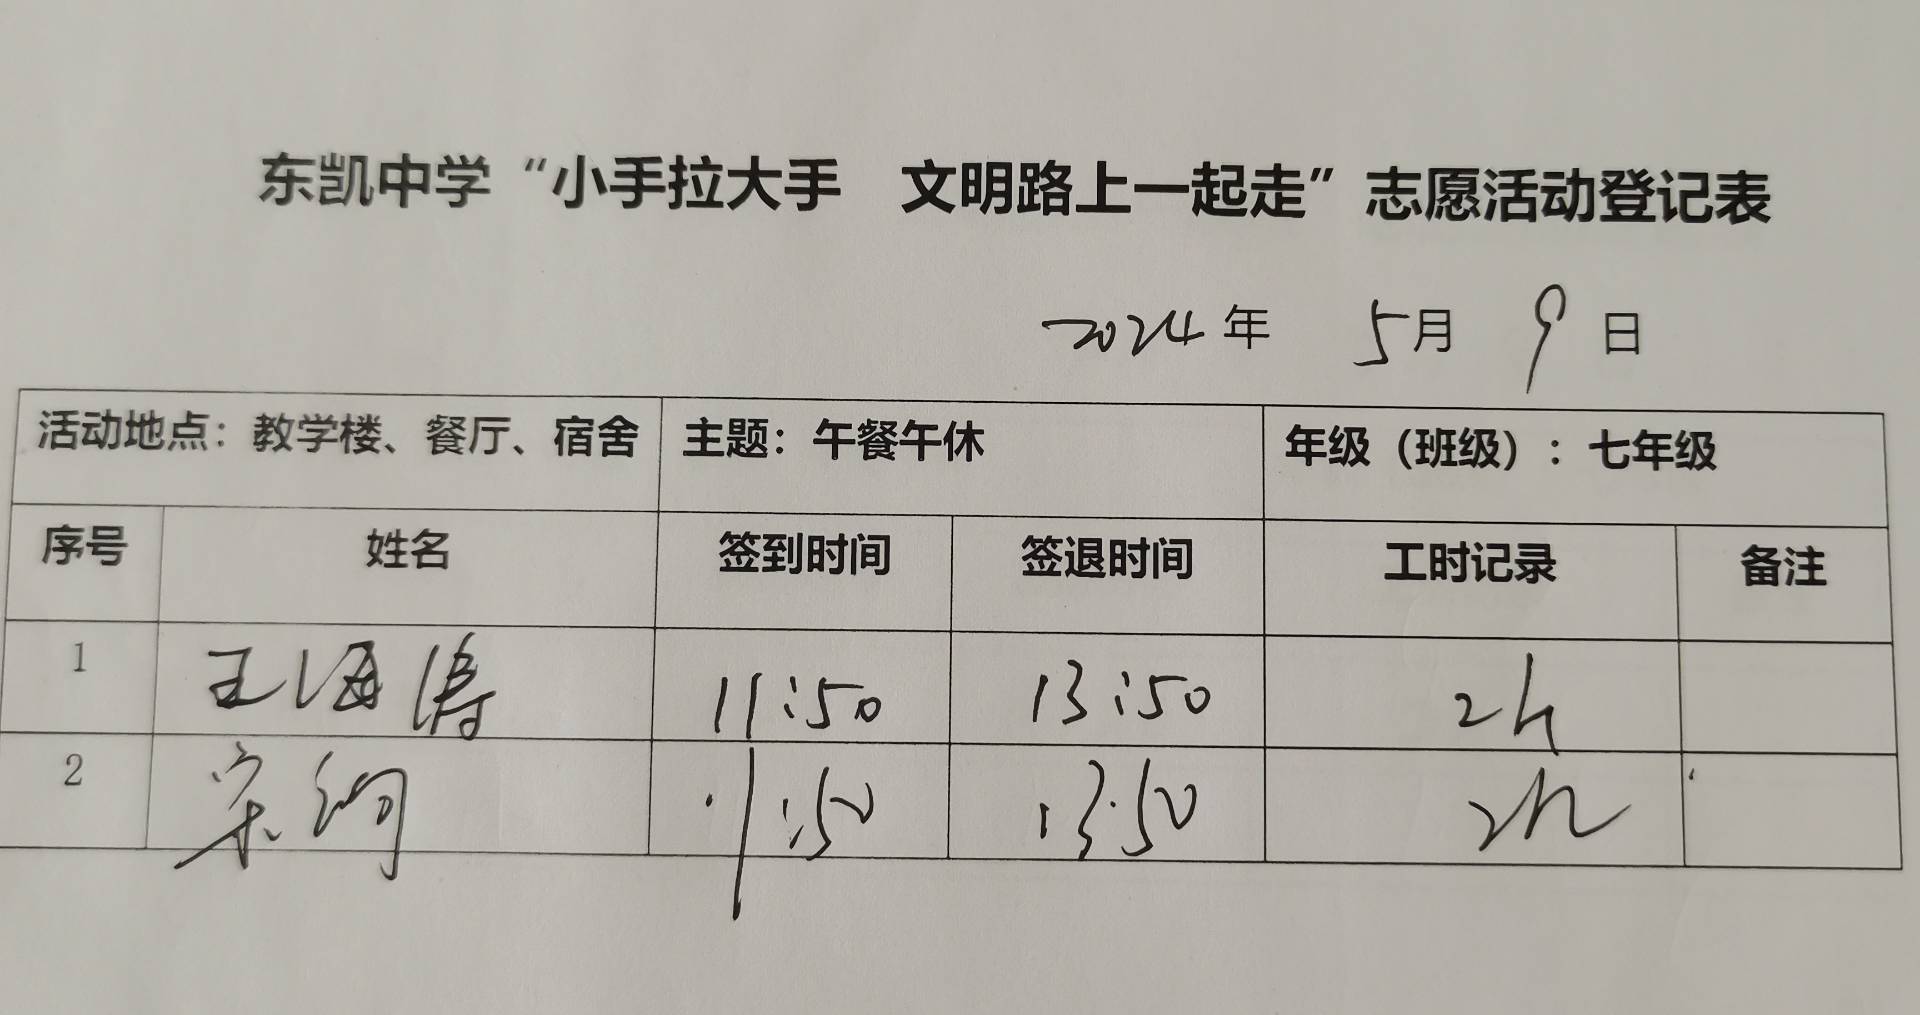 东凯中学“小手拉大手　文明路上一起走”志愿活动登记表
2024年 5月 9日
活动地点：教学楼、餐厅、宿舍 主题：午餐午休 年级（班级）：七年级
序号 姓名 签到时间 签退时间 工时记录 备注
1 王海涛 11:50 13:50 2h
2 宋 11:50 13:50 2h